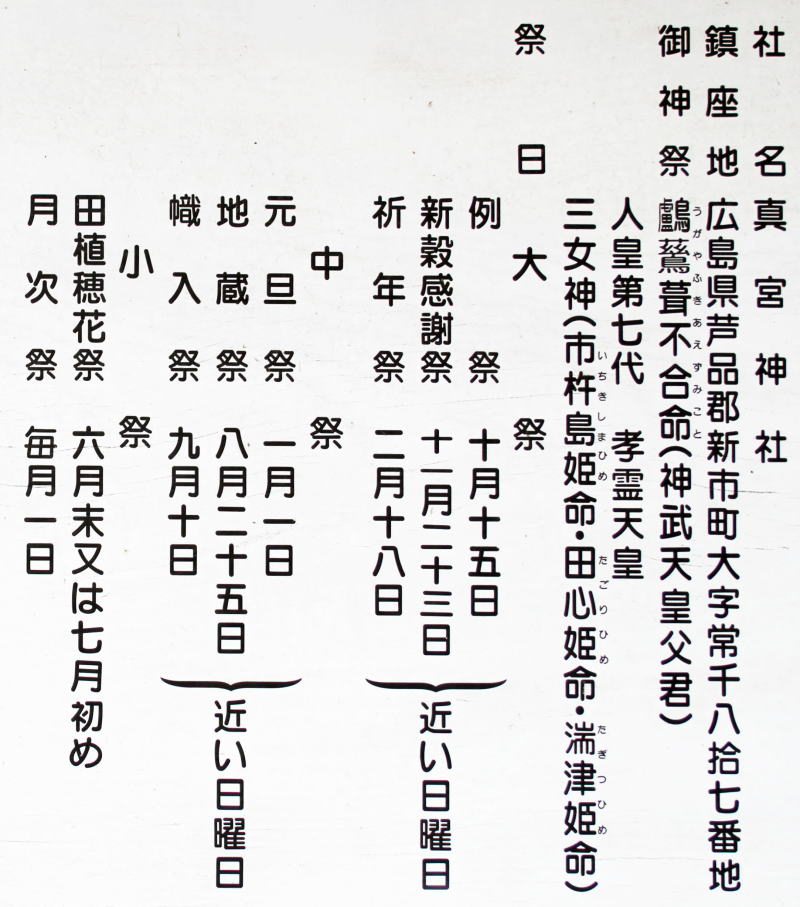 社名 真宮神社
鎮座地 広島県芦品郡新市町大字常千八拾七番地
御神祭 鸕鶿葺不合命(神武天皇父君)
うがやふきあえずみこと
人皇第七代 孝霊天皇
三女神(市杵島姫命・田心姫命・湍津姫命)
いちきしまひめ たごりひめ たぎつひめ
祭日 大祭
例祭 十月十五日
新穀感謝祭 十一月二十三日
祈年祭 二月十八日
近い日曜日
中祭
元旦祭 一月一日
地蔵祭 八月二十五日
幟入祭 九月十日
近い日曜日
小祭
田植穂花祭 六月末又は七月初め
月次祭 毎月一日